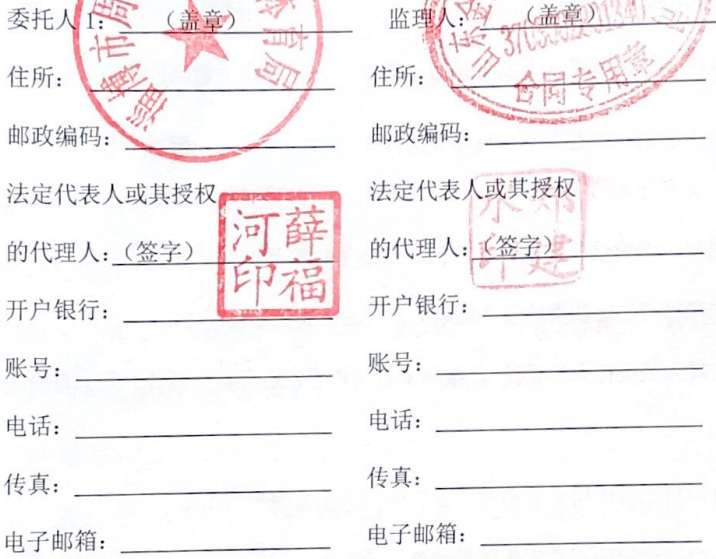 委托人1: （盖章）
住所:
邮政编码:
法定代表人或其授权
的代理人:（签字）
开户银行:
账号:
电话:
传真:
电子邮箱:
淄博市周 体育局
薛福河印
监理人: （盖章）
住所:
邮政编码:
法定代表人或其授权
的代理人:（签字）
开户银行:
账号:
电话:
传真:
电子邮箱:
山东
合同专用章
建 印